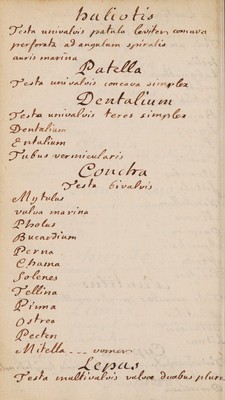 haliotis
Testa univalvis patula leviter concava
perforata ad angulum spiralis
auris marina
Patella
Testa univalvis concava simplex
Dentalium
Testa univalvis teres simplex
Dentalium
Entalium
Tubus vermicularis
Concha
Testa bivalvis
Mytulus
valva marina
Pholus
Bucardium
Perna
Chama
Solenes
Tellina
Pinna
Ostrea
Pecten
Mitella --- vomer
Lepas
Testa multivalvis valvæ duabus plures